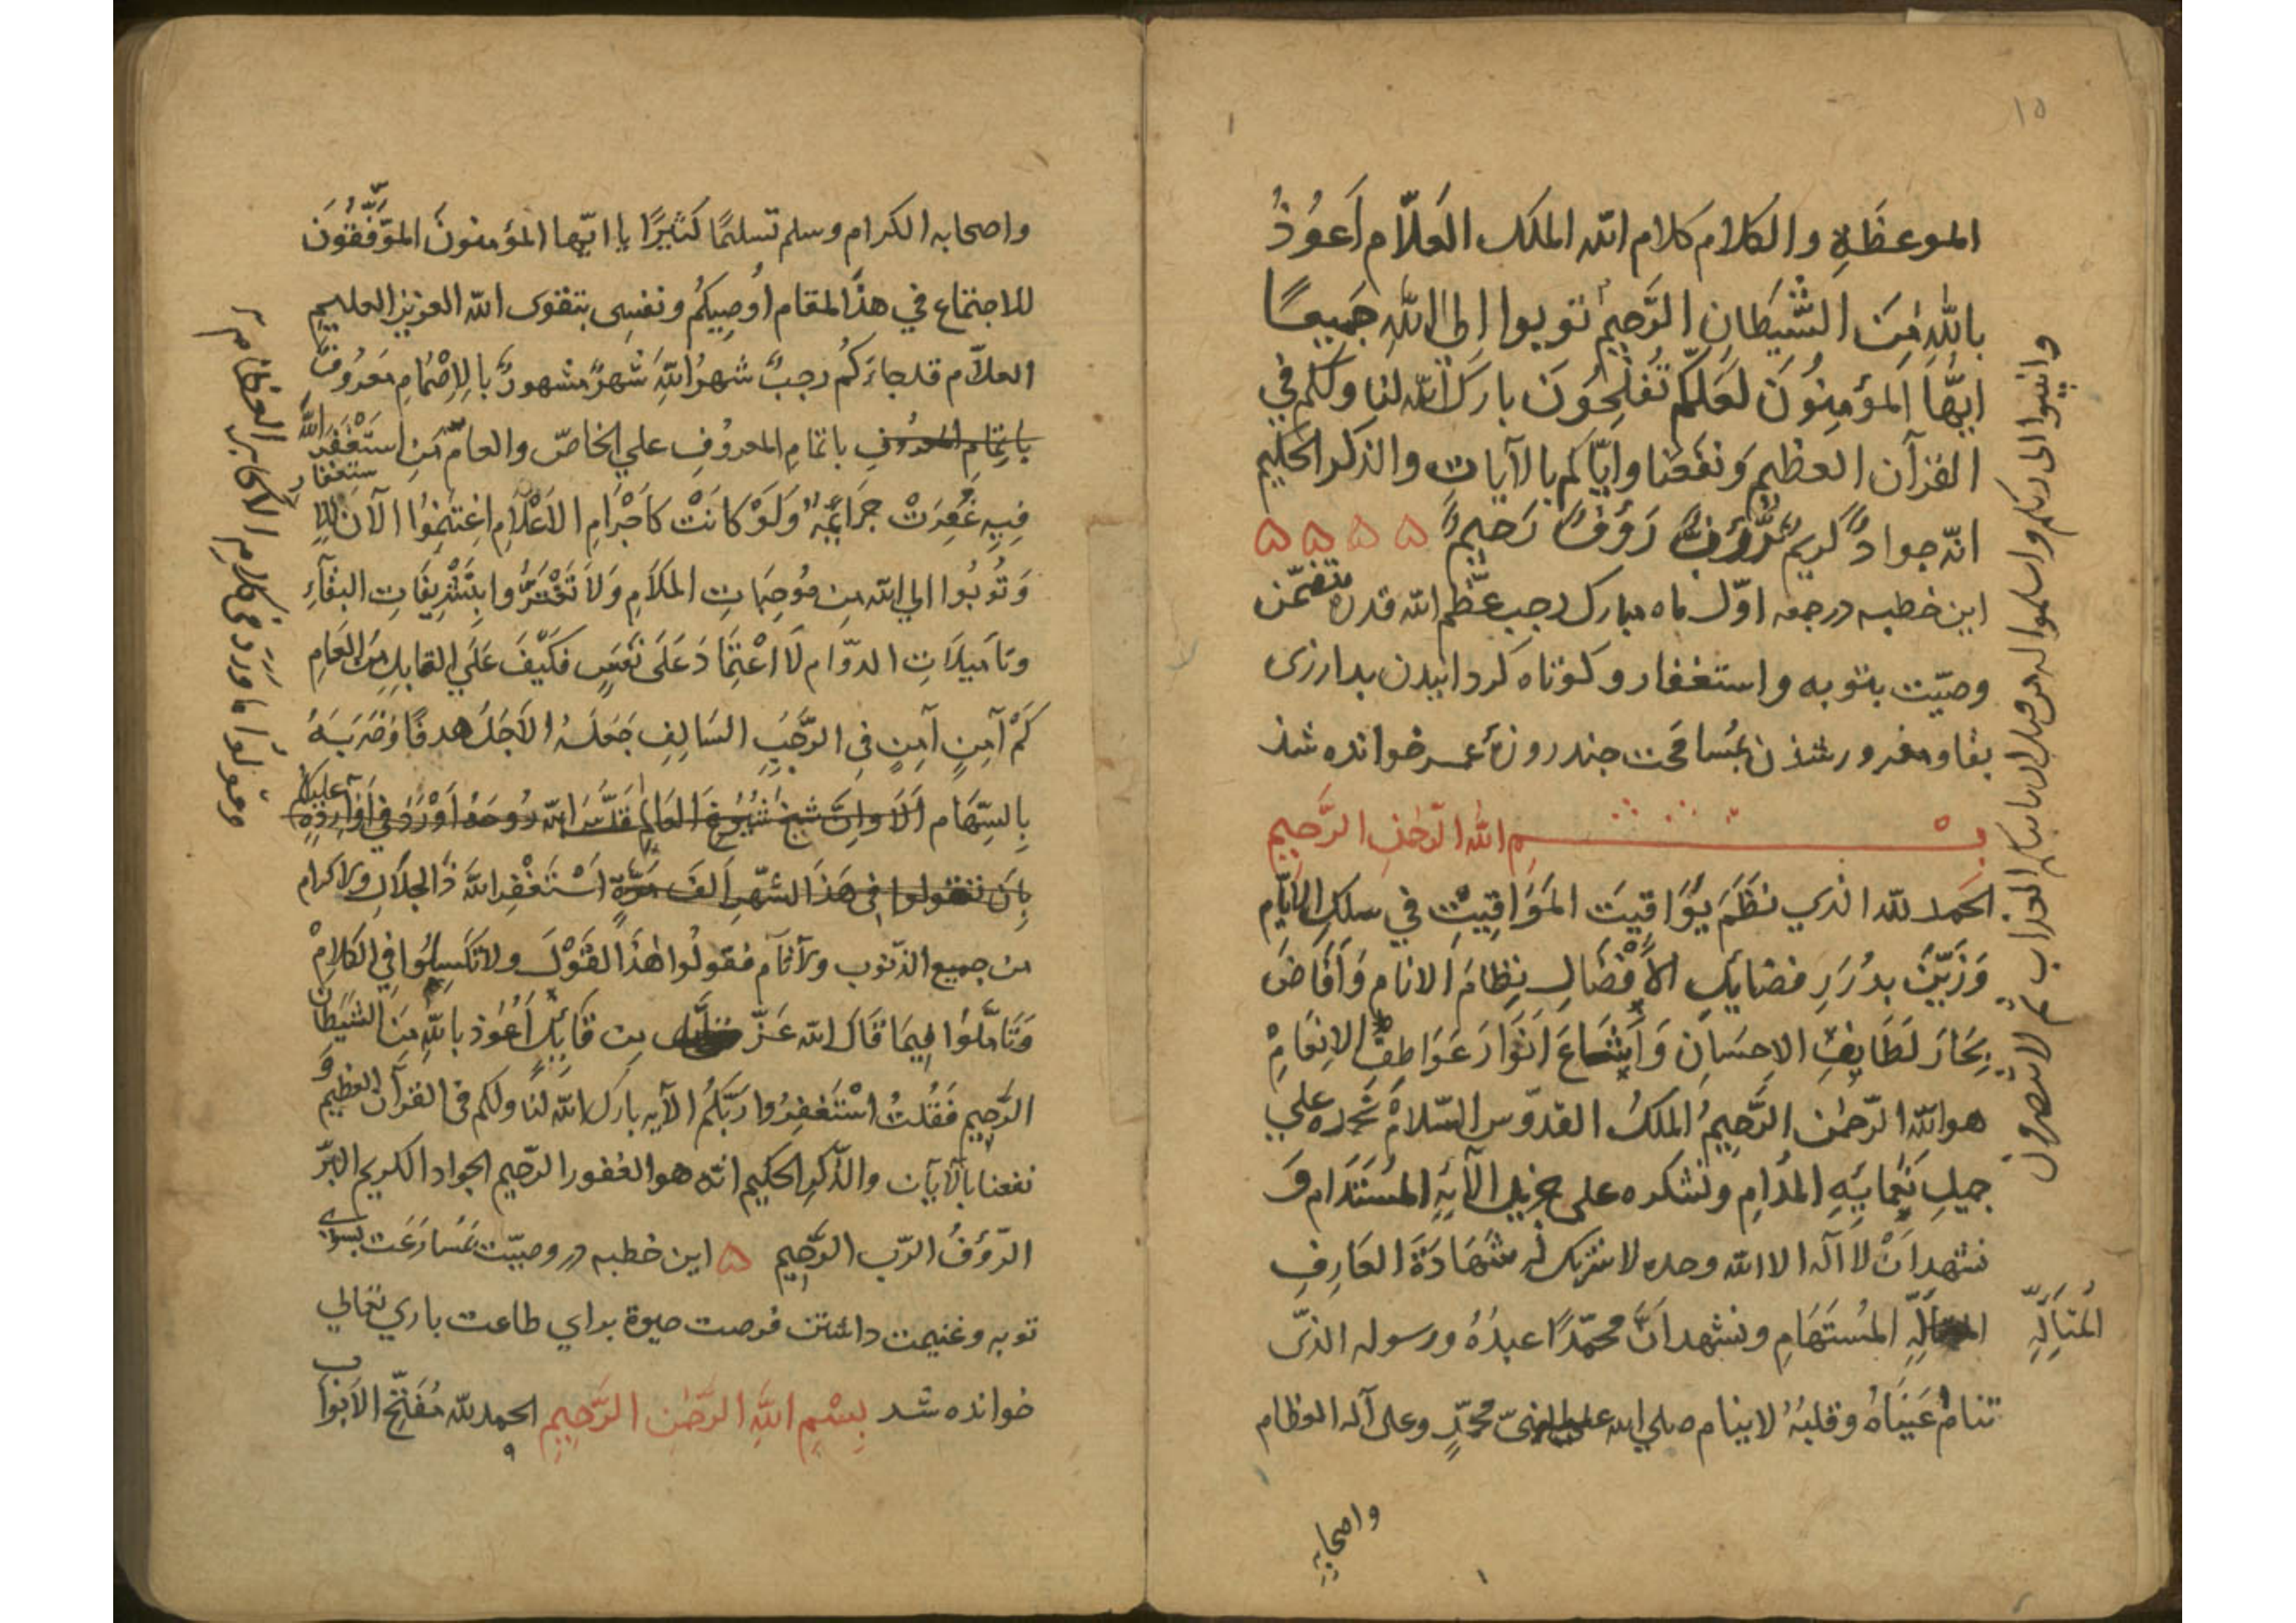 ١٥
الموعظة والكلام كلام الله الملك العلّام أَعوذُ
باللهِ مِنَ الشَّيطَانِ الرَّجيمِ توبوا إلى اللهِ جَميعًا
ايّها المؤمِنونَ لعَلكّم تُفلِحُونَ بارك الله لنا ولكم في
القرآن العظيم ونفعنا وايّاكم بالآيات والذكر الحكيم
انّه جوادٌ كريمٌ رَؤفٌ رَحيمٌ
اين خطبه در جمعه اوّل ماه مبارك رجب عظّم الله قدره متضمّن
وصيّت بتوبه واستغفار وكوتاه كردانيدن بدارزى
بقا ومغرور شذن بمُسامحت جند روزهٔ عمر خوانده شذ
بسم الله الرّحمن الرَّحيم
الحمد لله الذي نظَمَ يَوَاقِيتَ المَوَاقِيْت في سلك الأيَّام
وَزَيَّنَ بدُرَرِ فضائِلِ الأَفْضَالِ نِظَامَ الانام وَأَفَاضَ
بِحَارَ لَطَايِفِ الاِحسَانِ وَ انْوَارَ عَوَاطِفِ الاِنعَامْ
هو الله الرّحمن الرَّحيمُ الملكُ القدّوس السّلامُ نحمده علي
جميلِ نَعْمايَهِ المُدَامِ ونشكره على جزيل آلايهِ المُسْتَدَام وَ
نشهد أنْ لا اله الا الله وحده لا شريك له شَهَادَةَ العَارِفِ
المتألِّهِ المُسْتَهَامِ ونشهد انَّ محمّدًا عبدُهُ ورسوله الذى
تنامُ عَينَاهُ وقلبُهُ لا ينام صلي الله على النبىّ محمّدٍ وعلى آله العظام
المُتَألِّهِ
واصحابه
وانيبوا الى ربكم واسلموا له من قبل ان ياتيكم العذاب ثم لا تنصرون
واصحابه الكرام وسلم تسليمًا كَثيرًا يا ايّها المؤمنونَ المُوَفَّقُونَ
للاجتماع في هذا المقام أُوصِيكُمُ ونفسِى بتقوى الله العزيز العليم
العلاّم قد جاءَكُم رجبٌ شهرُ اللهِ شَهرٌ مشهورٌ بالاِصْمَامِ مَعْرُوفٌ
باِتمَامِ المعروفِ باتمامِ المعروفِ علي الخاصّ والعامّ مَنِ استَغْفَرَ اللهَ
فِيهِ غُفِرَتْ جَرَائِمُهُ وَلَوْ كَانَتْ كاَجْرَامِ الاَعْلاَمِ اِغتَنِمُوا الآن للاستغفار
وَتُوبُوا الي الله من مُوجِبَاتِ المَلاَمِ وَلاَ تَغْتَرُّوا بتَشْرِيفَاتِ البقَآءِ
وتَاميلاَتِ الدوّام لاَ اعْتِمَادَ عَلَى نفَسٍ فكَيْفَ عَلَي القابل مِنَ العَامِ
كَمْ آمِنٍ آمِنٍ في الرَّجَبِ السَالِفِ جَعَلَهُ الأجَلُ هدفًا وَضَرَبَهُ
بِالسِّهَام أَلاَ وَاِنَّ شيخَ شُيُوخِ العَالَمِ قَدَّسَ الله رُوحَهُ اَوْرَدَ في أَوْرَادِهِ عليكم
بِاَن تقولوا في هَذَا الشّهرِ اَلفَ مَرَّةٍ اَسْتَغْفِرُ اللهَ ذَا الجلاَلِ والاكرام
من جميع الذّنوب والآثام فقولُوا هٰذَا القَوْلَ ولا تَكْسَلُوا في الكَلاَمْ
وَتَأمَّلُوا فيمَا قَالَ الله عَزَّ من قَائِلٍ اَعُوذ باللهِ مِنَ الشيطَان
الرَّجيمِ فَقُلْتُ اسْتَغفِرُوا رَبَّكُمُ الآيه بارك الله لنا ولكم فى القرآن العظيم وَ
نفعنا بالآيات والذّكر الحكيم انّه هو الغفور الرّحيم الجواد الكريم البَرّ
الرّؤفُ الرّب الرَّحيم اين خطبه در وصيّت بمُسارَعَت بسوى
توبه وغنيمت داشتن فرصت حيوة براي طاعت باري تعالي
خوانده شد بِسْمِ اللهِ الرحمن الرَّحِيمِ الحمد لله مُفَتِّح الاَبواب
وتقولوا ما وَرَدَ في كلام الأكابر العظام